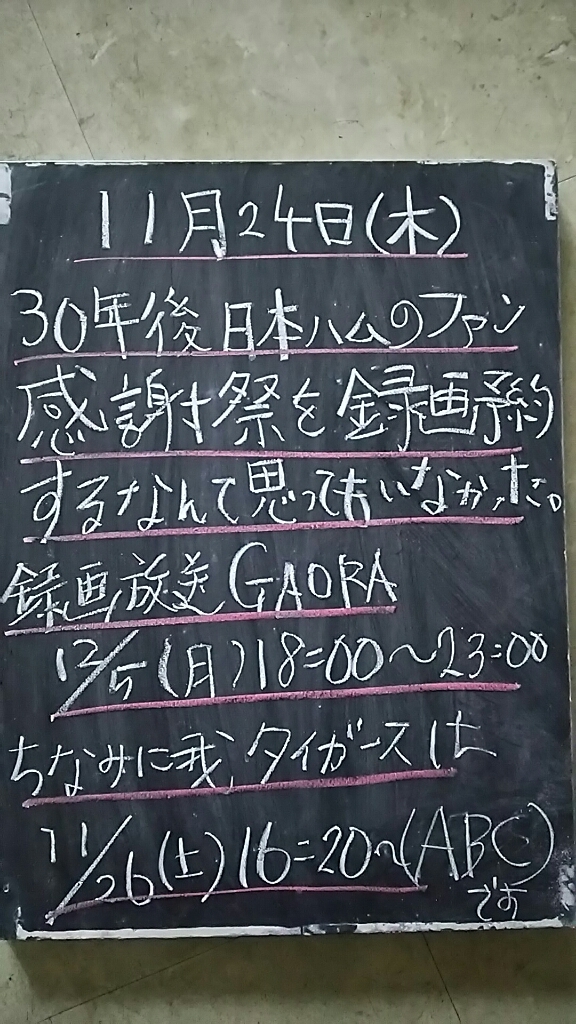 11月24日(木)
30年後日本ハムのファン
感謝祭を録画予約
するなんて思ってもいなかった。
録画放送GAORA
12/5(月)18:00〜23:00
ちなみに我タイガースは
11/26(土)16:20〜(ABC)
です